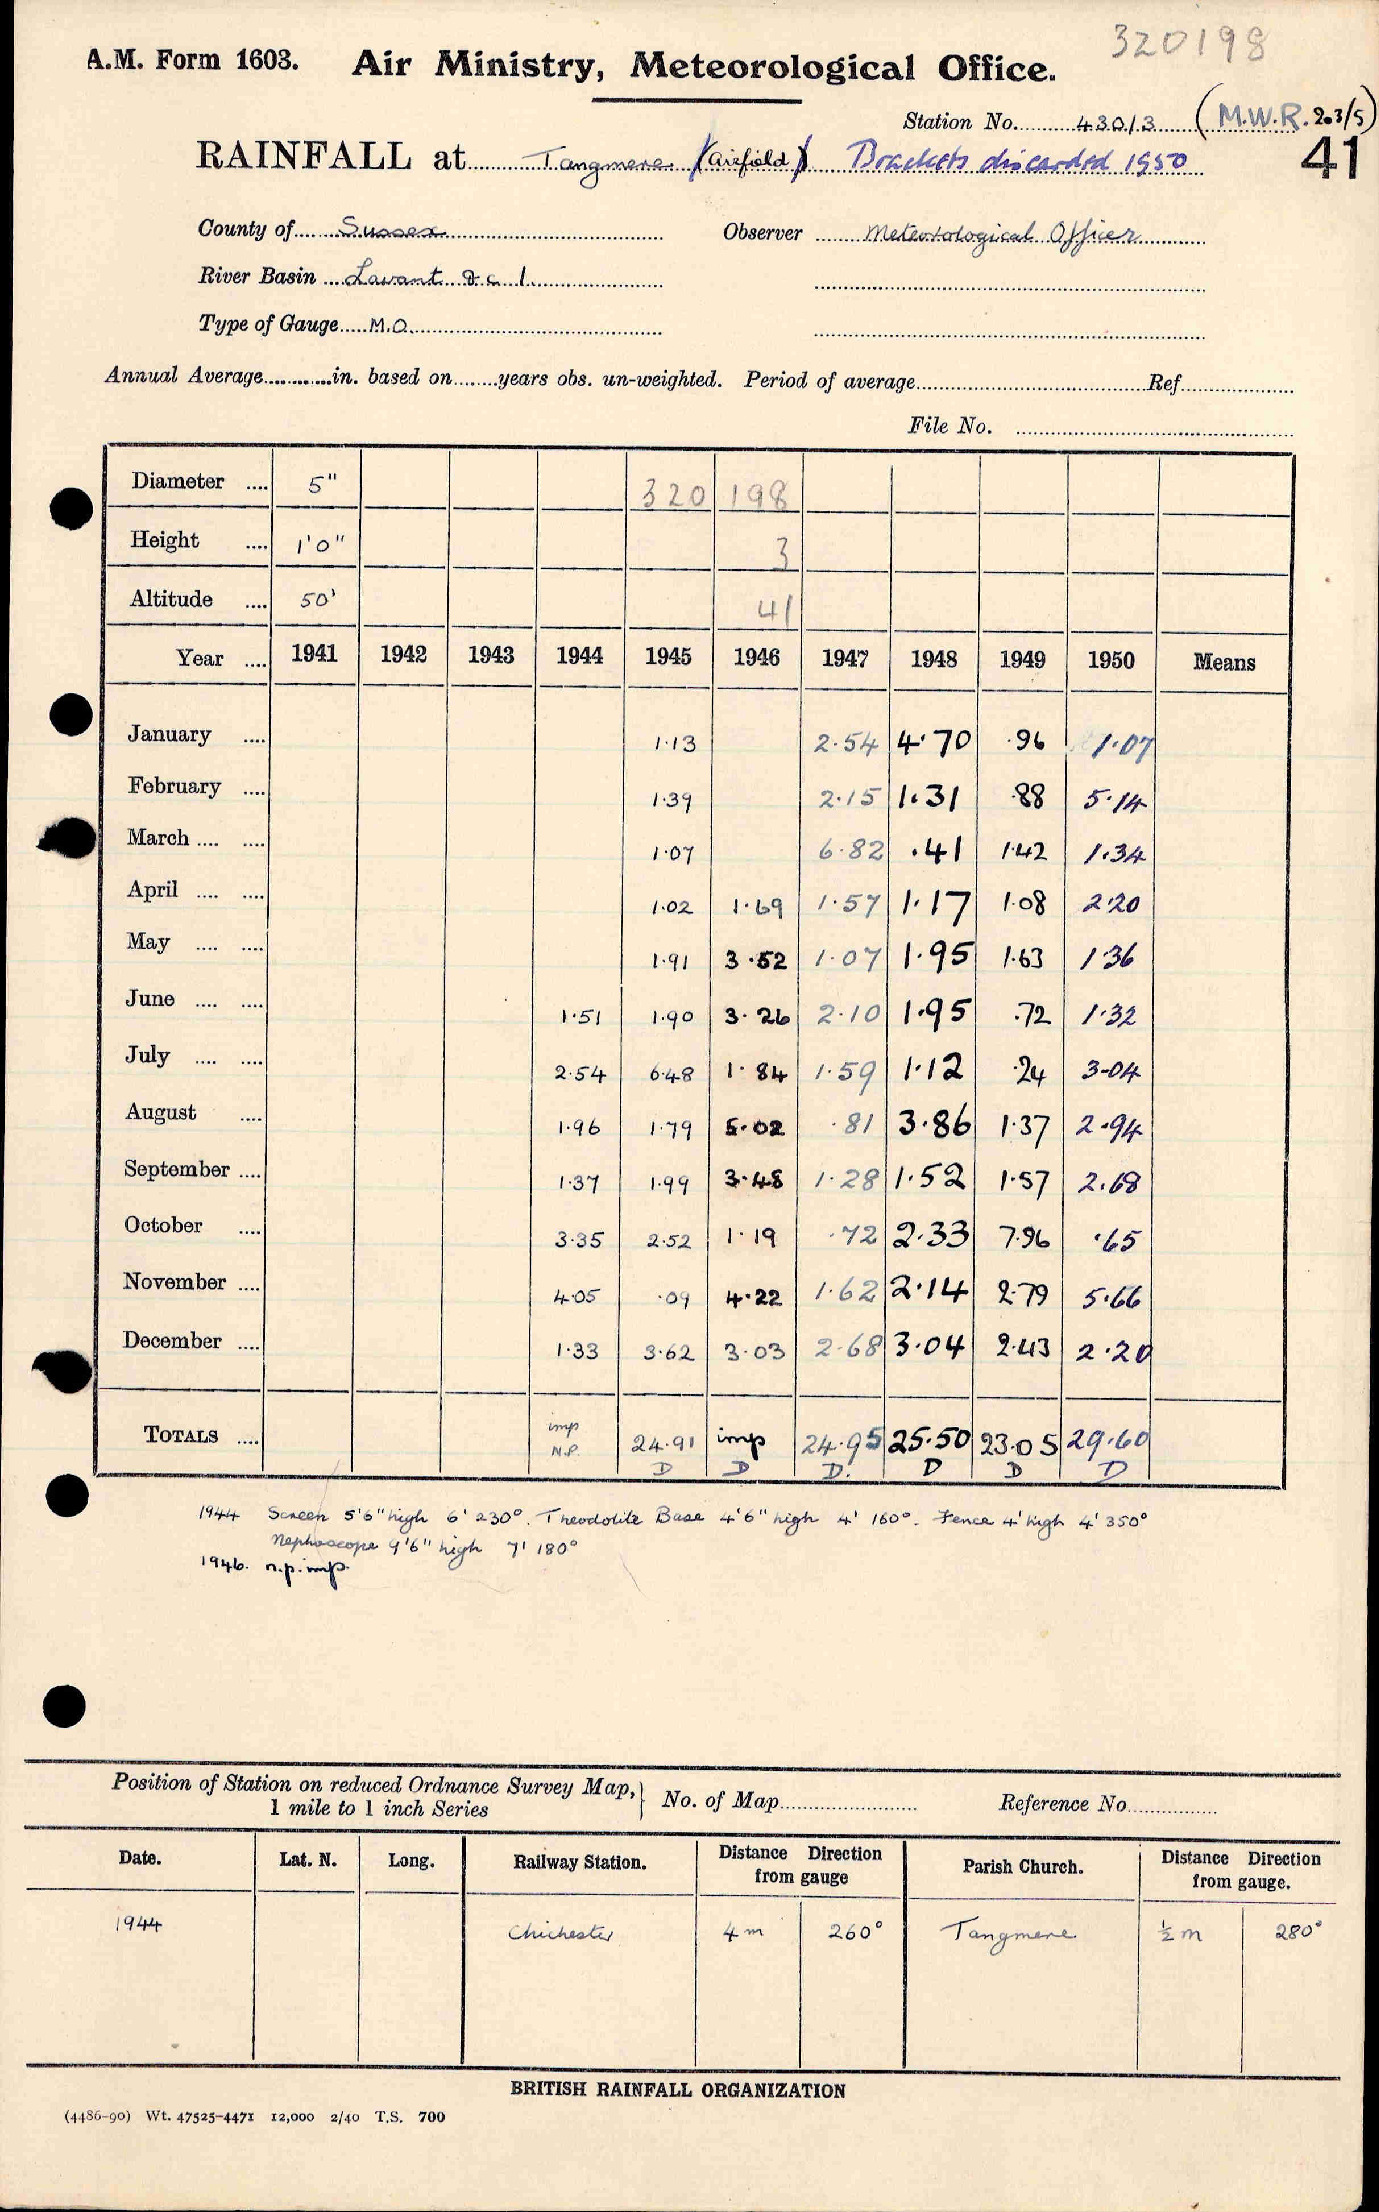 320198
A.M. Form 1603. Air Ministry, Meteorological Office.
Station No. 430/3 (M.W.R. 203/5)
RAINFALL at Tangmere (Airfield) Brackets discarded 1950 41
County of Sussex Observer Meteorological Officer
River Basin Lavant &c 1.
Type of Gauge M.O.
Annual Average............in. based on........years obs. un-weighted. Period of average........ Ref........
File No. ........
Diameter .... 5" 320 198
Height .... 1'0" 3
Altitude .... 50' 41
Year .... 1941 1942 1943 1944 1945 1946 1947 1948 1949 1950 Means
January .... 1.13 2.54 4.70 .96 1.07
February .... 1.39 2.15 1.31 .88 5.14
March .... .... 1.07 6.82 .41 1.42 1.34
April .... .... 1.02 1.69 1.57 1.17 1.08 2.20
May .... .... 1.91 3.52 1.07 1.95 1.63 1.36
June .... .... 1.51 1.90 3.26 2.10 1.95 .72 1.32
July .... .... 2.54 6.48 1.84 1.59 1.12 .24 3.04
August .... 1.96 1.79 5.02 .81 3.86 1.37 2.94
September .... 1.37 1.99 3.48 1.28 1.52 1.57 2.68
October .... 3.35 2.52 1.19 .72 2.33 7.96 .65
November .... 4.05 .09 4.22 1.62 2.14 2.79 5.66
December .... 1.33 3.62 3.03 2.68 3.04 2.43 2.20
TOTALS .... imp N.P. 24.91 imp 24.95 25.50 23.05 29.60
D D D. D D D
1944 Screen 5'6" high 6' 230°. Theodolite Base 4'6" high 4' 160°. Fence 4' high 4' 350°
Nephoscope 9'6" high 7' 180°
1946. n.p. imp.
Position of Station on reduced Ordnance Survey Map,} No. of Map........ Reference No........
1 mile to 1 inch Series
Date. Lat. N. Long. Railway Station. Distance from gauge Direction Parish Church. Distance from gauge. Direction
1944 Chichester 4 m 260° Tangmere ½ m 280°
BRITISH RAINFALL ORGANIZATION
(4486-90) Wt. 47525-4471 12,000 2/40 T.S. 700